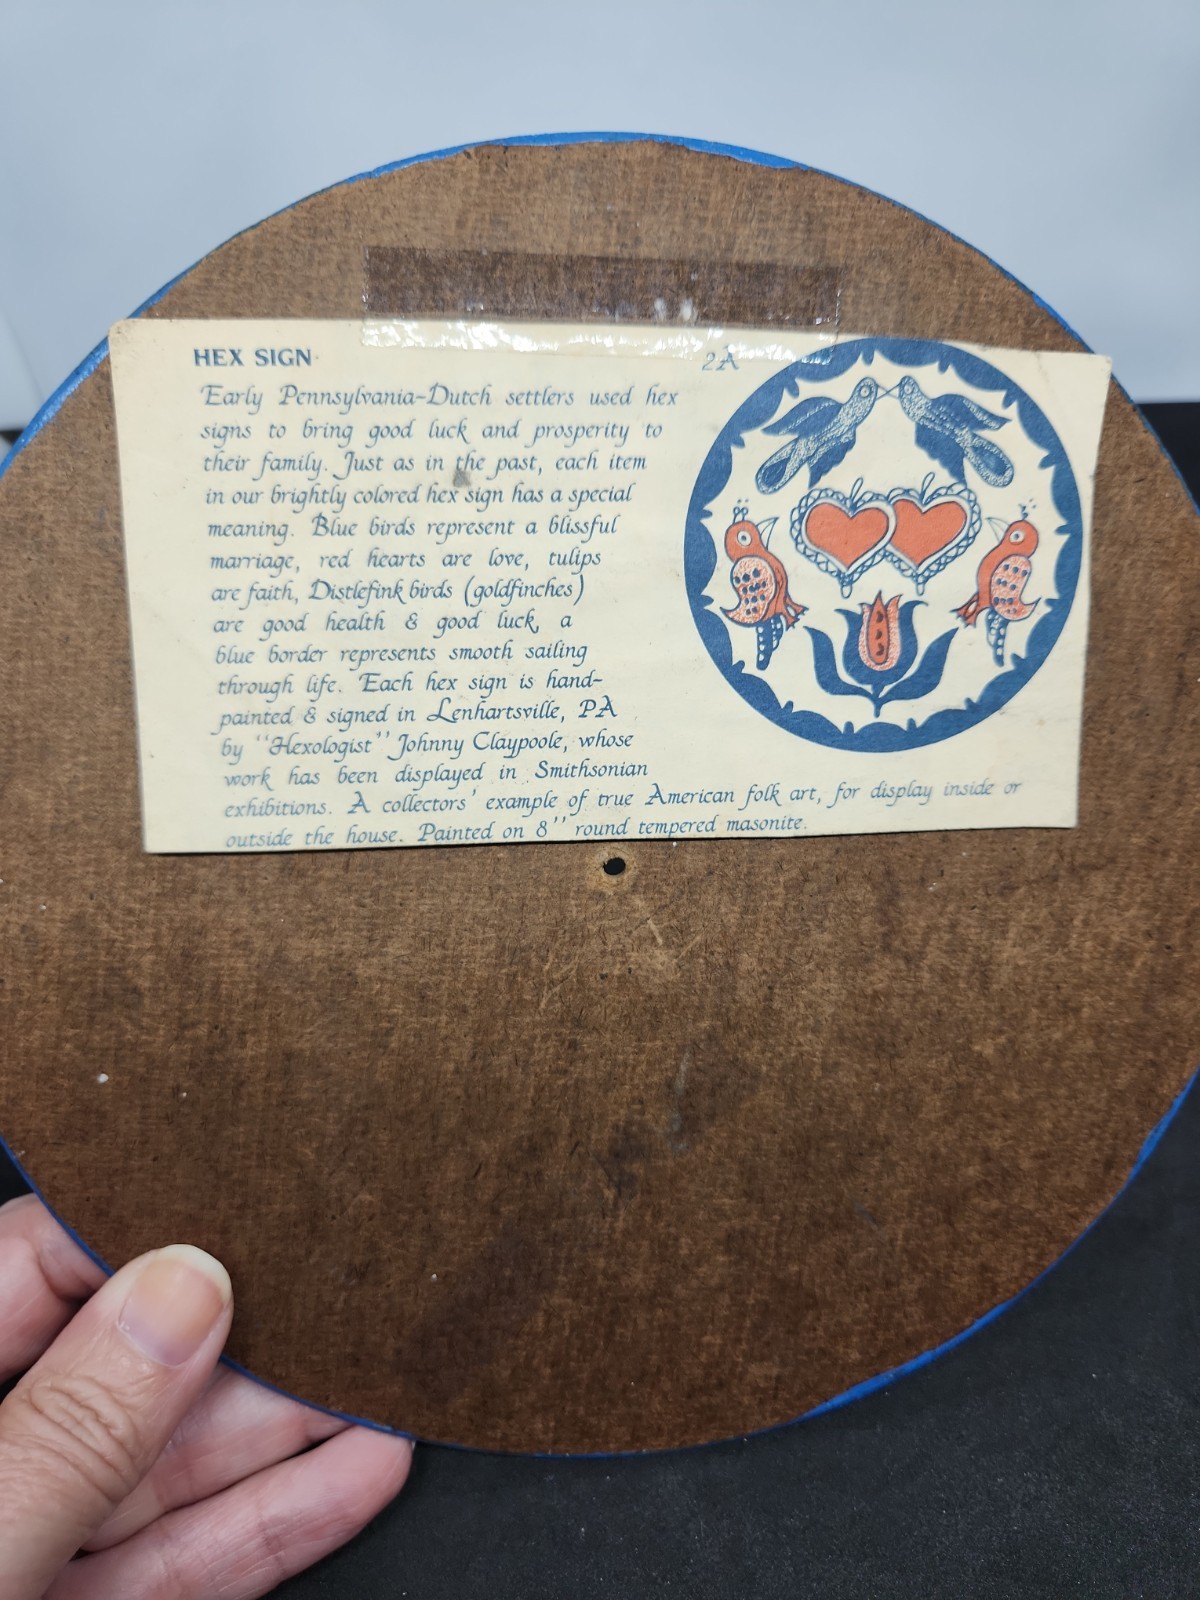 HEX SIGN
2A
Early Pennsylvania-Dutch settlers used hex
signs to bring good luck and prosperity to
their family. Just as in the past, each item
in our brightly colored hex sign has a special
meaning. Blue birds represent a blissful
marriage, red hearts are love, tulips
are faith, Distlefink birds (goldfinches)
are good health & good luck, a
blue border represents smooth sailing
through life. Each hex sign is hand-
painted & signed in Lenhartsville, PA
by "Hexologist" Johnny Claypoole, whose
work has been displayed in Smithsonian
exhibitions. A collectors' example of true American folk art, for display inside or
outside the house. Painted on 8" round tempered masonite.